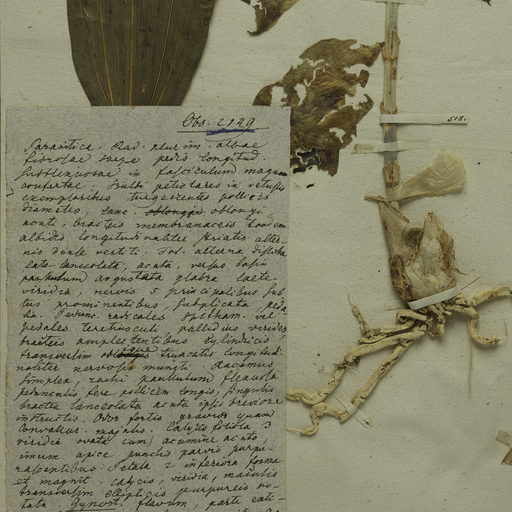 Obs. 2149
518.
Parasitica - Rad. plurim. albae
fibrosae saepe pedis longitud.
subflexuosae in fasciculum magnum
confertae. Bulbi petiolares in vetustis
exemplaribus turgescentes pollicis
diametro, lanc. oblongae oblongi,
acuti, bracteis membranaceis
albidis longitudinaliter striatis alter-
nis dense vestiti. Fol. alterna disticha
lato-lanceolata, acuta, versus basin
paululum angustata glabra laete
viridia, nervis 5 principalibus sub-
tus prominentibus, subplicata peda-
lia. Pedunc. radicales 
pedales teretiusculi pallidius virides,
bracteis amplectentibus cylindricis,
transversim truncatis longitudi-
naliter nervosis muniti. Racemus
simplex, rachi paululum flexuosa
pedunculis fere pollicem longis, singulis
bractea lanceolata acuta ipsis breviore
instructis. Odor fortis gravior quam
Convallar. majalis. Calycis foliola 3
viridia ovata cum acumine acuto,
imum apice punctis parvis purpu-
rascentibus. Petala 2 inferiora forma
et magnit. calycis, viridia, maculis
transversim ellipticis purpureis no-
tata. Gynost. flavum, parte anti-